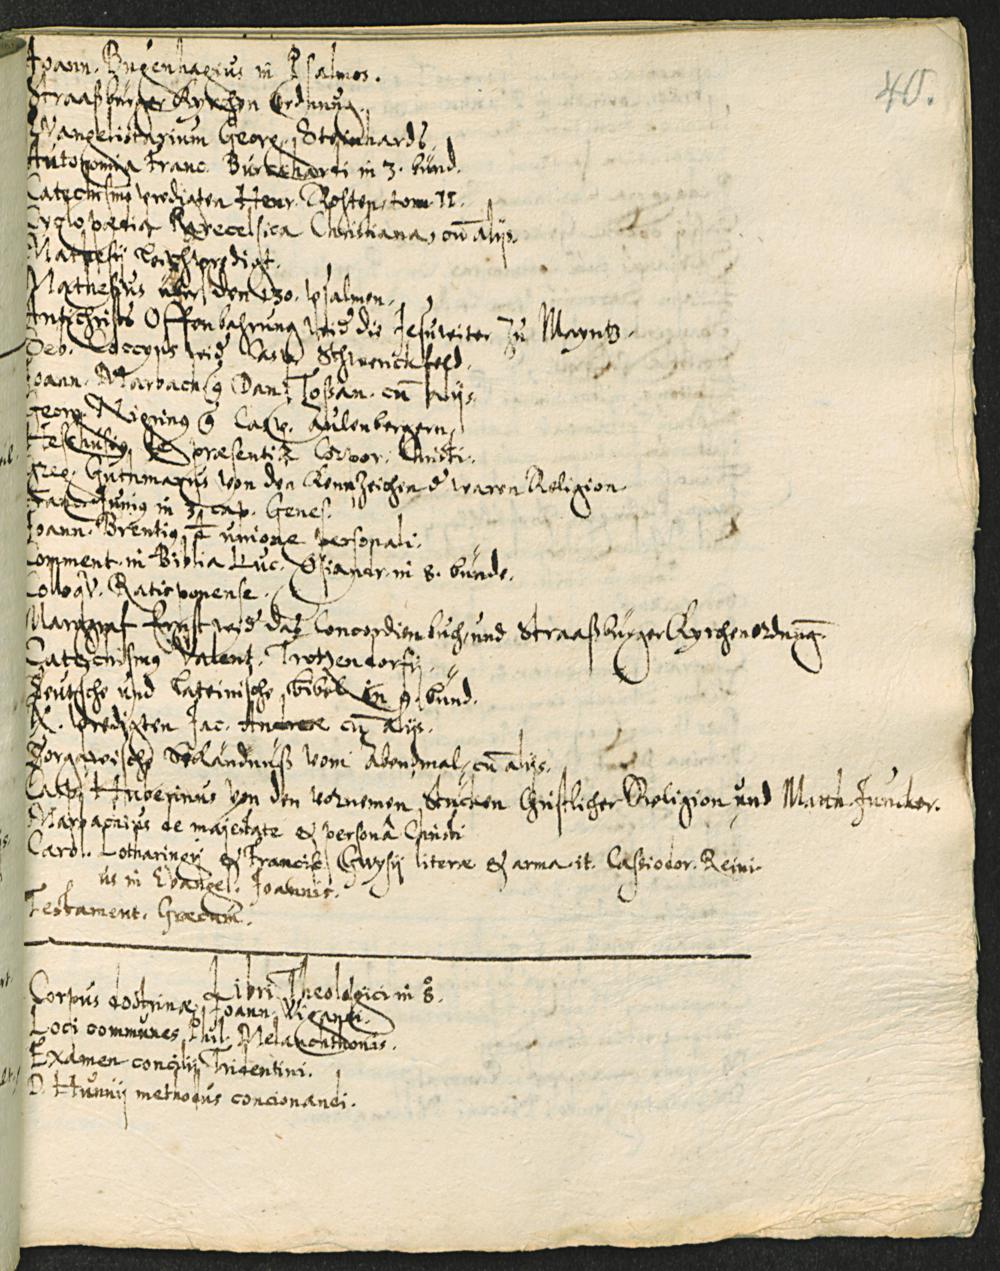 40.
Joann. Bugenhagius in Psalmos.
Straaßbürger Kyrchen Ordnung.
Evangelistarium Georg. Steinhards.
Autonomia Franc. Burckharti in 3. bünd.
Catechismus predigten Henr. Rosten, tom. II.
Cyclopædia Paracelsica Christiana, cu̅ alijs.
Mathesij Leichpredigt.
Mathesius über den 130. psalmen.
Antichrists Offenbahrung wid̕ die Jesuwiter zu Mayntz.
Geo. Coccyus wid̕ Casp. Schwenckfeld.
Joann. Marbach & Dan. Toßan. cu̅ alijs.
Georg. Nigrinus Casp. Aulenbergern.
Heshusius de præsentia Corpor. Christi.
Greg. Gutnmagus von den Kennzeichen d̕ waren Religion.
Franc. Junius in 3. cap. Genes.
Joann. Brentius unione personali.
Comment. in Biblia Luc. Osiandr. in 8. bünde.
Colloqu. Ratisponense.
Marggraf Ernst wid̕ das Concordien buch, und Straaßbürger Kyrchenordnu̅g.
Catechismus Valent. Trotzendorfij.
Deutsche und Lateinische Bibel in 9. bünd.
predigten Jac. Andreæ cu̅ alijs.
vom Abendmal, cu̅ alijs.
Casp. Huberinus von den vornemen Stücken Christlicher Religion und Matth. Juncker.
Marbachius de majestate & personâ Christi
Carol. Lotharingij & Francisc. Gwysij literæ & arma. it. Cassiodor. Reini-
us in Evangel. Joannis.
Testament. Græcum.
Libri Theologici in 8.
Corpus doctrinæ Joann. Wigandi.
Loci communes Phil. Melanchthonis.
Examen concilij Tridentini.
D. Hunnij methodus concionandi.